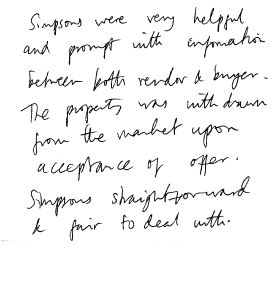 Simpsons were very helpful
and prompt with information
between both vendor & buyer.
The property was withdrawn
from the market upon
acceptance of offer.
Simpsons straightforward
& fair to deal with.